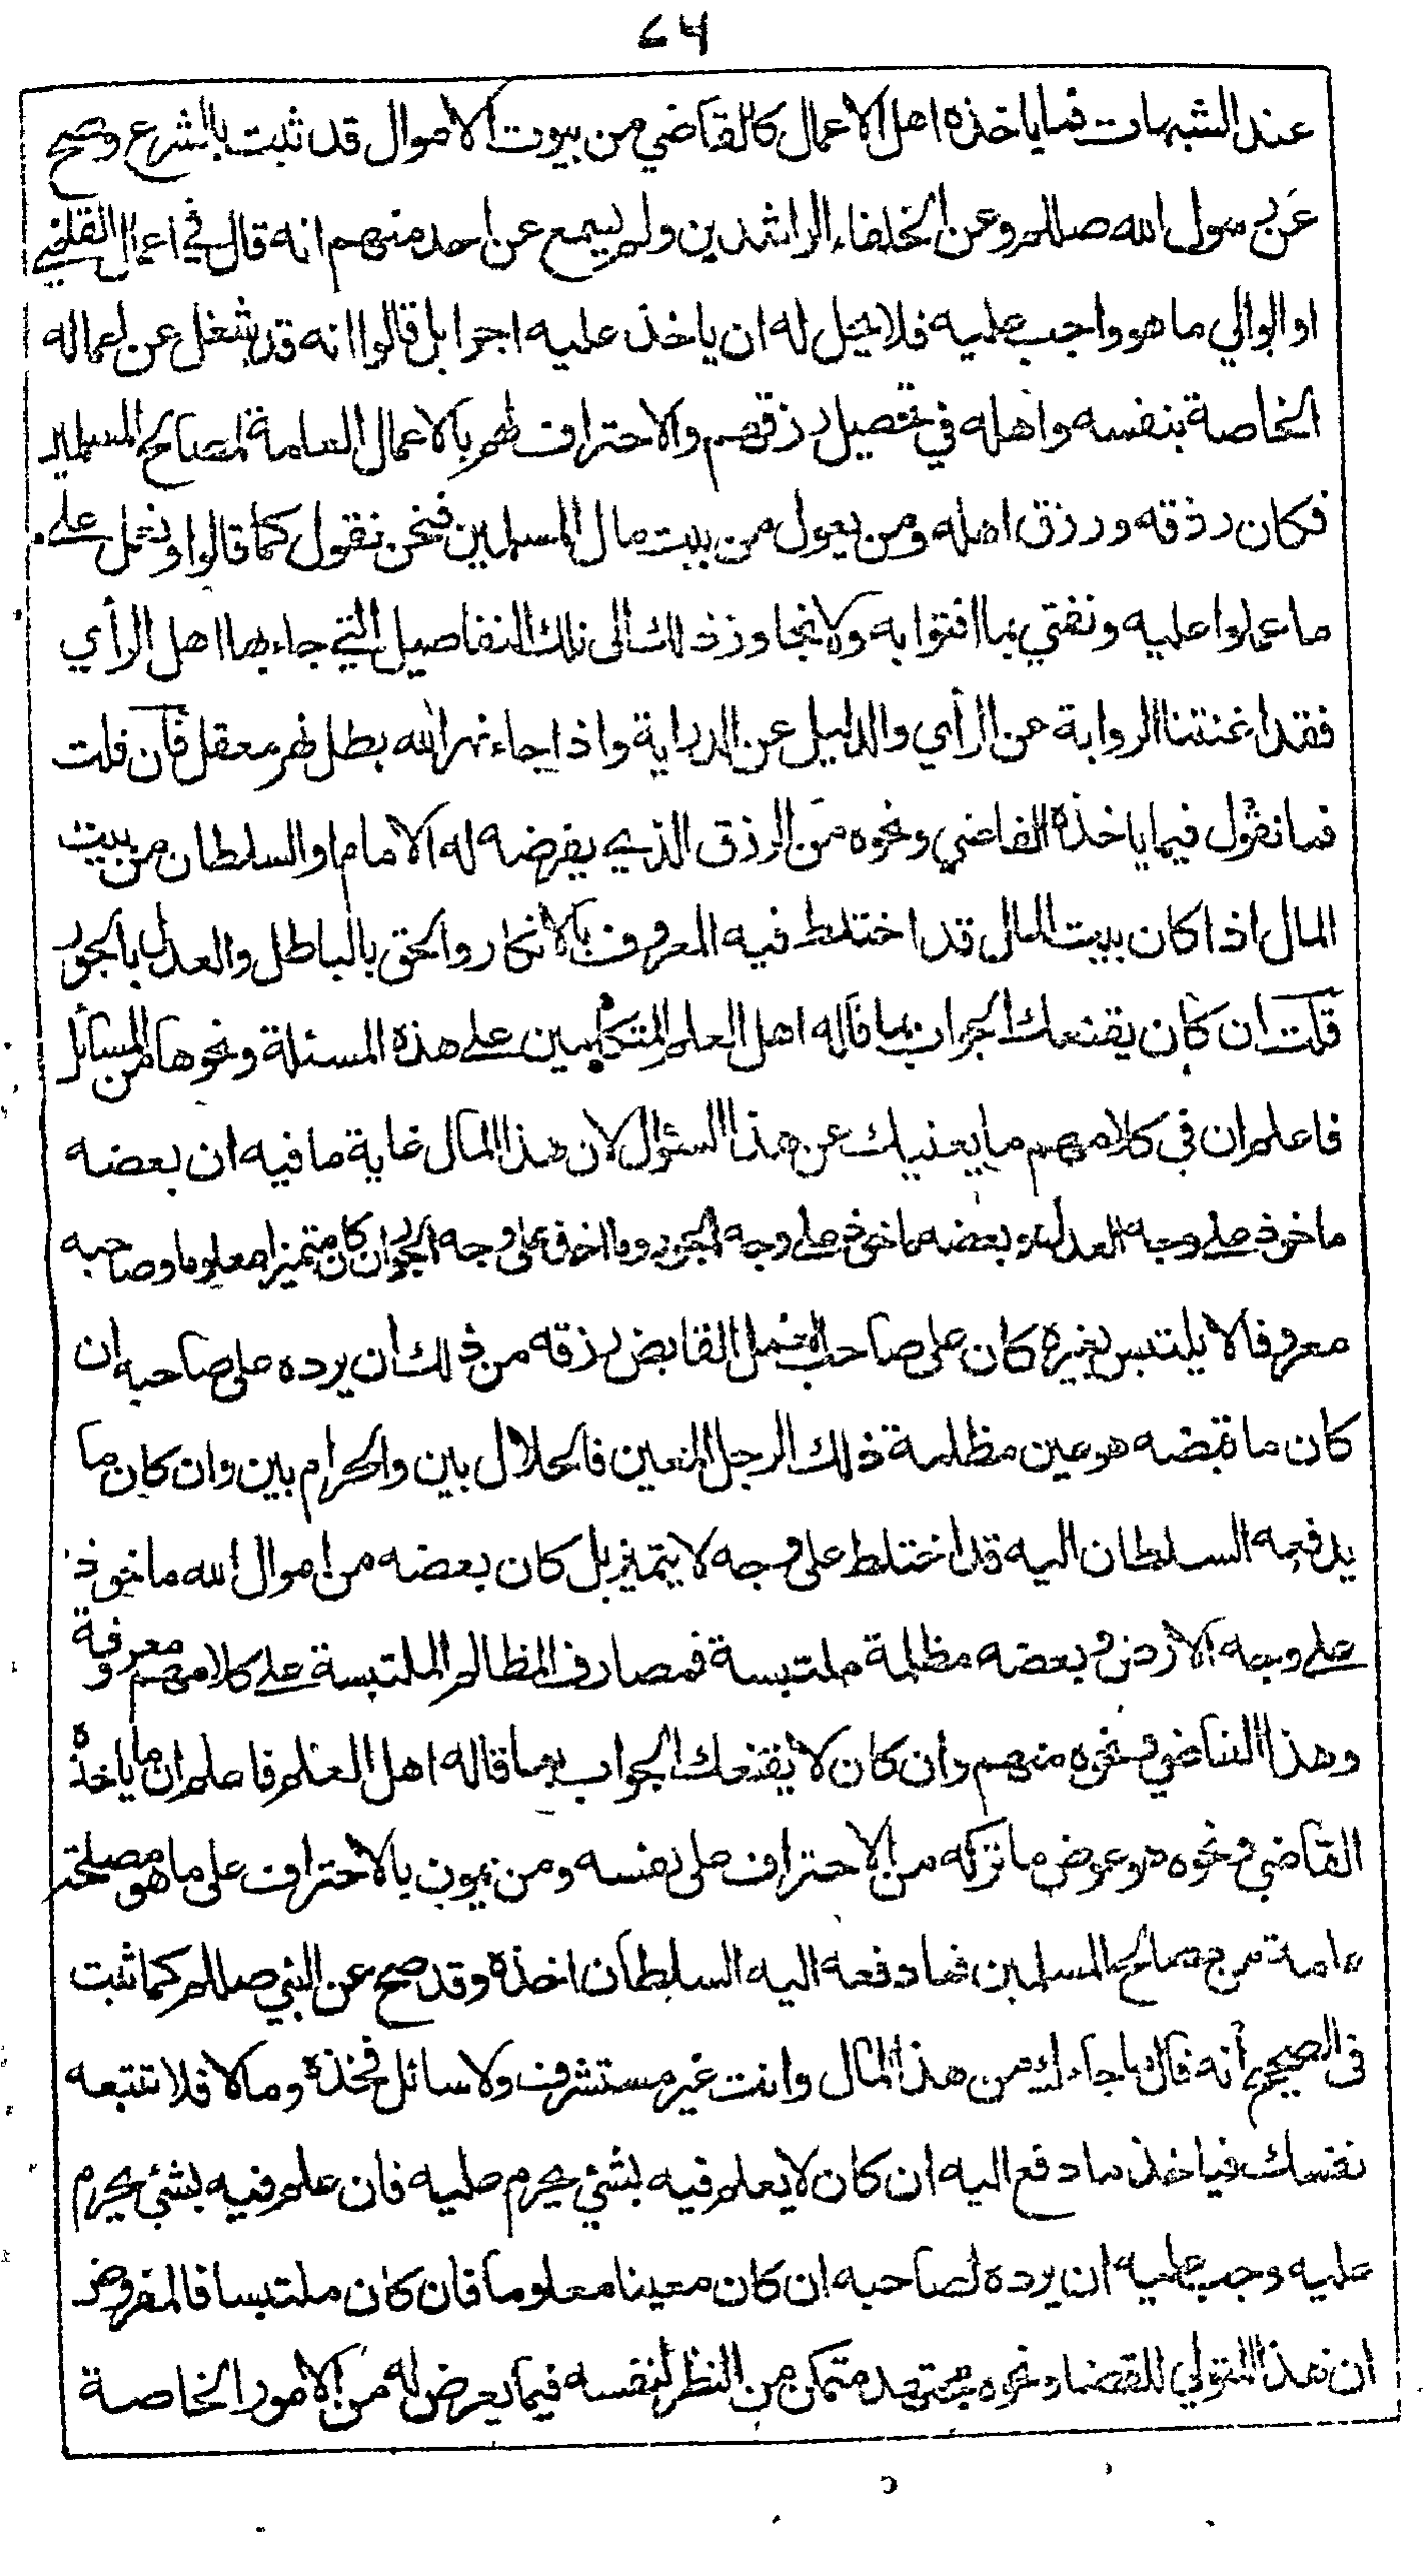 ٢٤
عند الشبهات فما ياخذه اهل الاعمال كالقاضي من بيوت الاموال قد ثبت بالشرع وصح
عن رسول الله صللم وعن الخلفاء الراشدين ولم يسمع عن احد منهم انه قال في اعمال القاضي
او الوالي ما هو واجب عليه فلا يحل له ان ياخذ عليه اجرا بل قالوا انه قد شغل عن اعماله
الخاصة بنفسه واهله في تحصيل رزقهم والاحتراف لهم بالاعمال العامة لمصالح المسلمين
فكان رزقه ورزق اهله ومن يعول من بيت مال المسلمين فنحن نقول كما قالوا ونحمل على
ما عملوا عليه ونفتي بما افتوا به ولا نجاوز ذلك الى تلك التفاصيل التي جاء بها اهل الرأي
فقد اغنتنا الرواية عن الرأي والدليل عن الدراية واذا جاء نهر الله بطل نهر معقل فان قلت
فما نقول فيما ياخذه القاضي ونحوه من الرزق الذي يفرضه له الامام او السلطان من بيت
المال اذا كان بيت المال قد اختلط فيه المعروف بالانكار والحق بالباطل والعدل بالجور
قلت ان كان يقنعك الجواب بما قاله اهل العلم المتكلمين على هذه المسئلة ونحوها من المسائل
فاعلم ان في كلامهم ما يغنيك عن هذا السئوال لان هذا المال غاية ما فيه ان بعضه
ماخوذ على وجه العدل وبعضه ماخوذ على وجه الجور وما اخذ على وجه الجور ان كان متميزا معلوما وصاحبه
معروفا لا يلتبس بغيره كان على صاحب العمل القابض لرزقه من ذلك ان يرده على صاحبه ان
كان ما قبضه هو عين مظلمة ذلك الرجل المعين فالحلال بين والحرام بين وان كان ما
يدفعه السلطان اليه قد اختلط على وجه لا يتميز بل كان بعضه من اموال الله ماخوذ
على وجه الاذن وبعضه مظلمة ملتبسة فمصارف المظالم الملتبسة على كلامهم معروفة و
وهذا القاضي ونحوه منهم وان كان لا يقنعك الجواب بما قاله اهل العلم فاعلم ان ما ياخذه
القاضي ونحوه هو عوض ما تركه من الاحتراف على نفسه ومن يمون بالاحتراف على ما هو مصلحة
عامة من مصالح المسلمين فما دفعه اليه السلطان اخذه وقد صح عن النبي صللم كما ثبت
في الصحيح انه قال ما جاءك من هذا المال وانت غير مستشرف ولا سائل فخذه وما لا فلا تتبعه
نفسك فياخذ ما دفع اليه ان كان لا يعلم فيه بشئ يحرم عليه فان علم فيه بشئ يحرم
عليه وجب عليه ان يرده لصاحبه ان كان معينا معلوما فان كان ملتبسا فالمفروض
ان هذا المتولي للقضاء ونحوه مجتهد متمكن من النظر لنفسه فيما يعرض له من الامور الخاصة